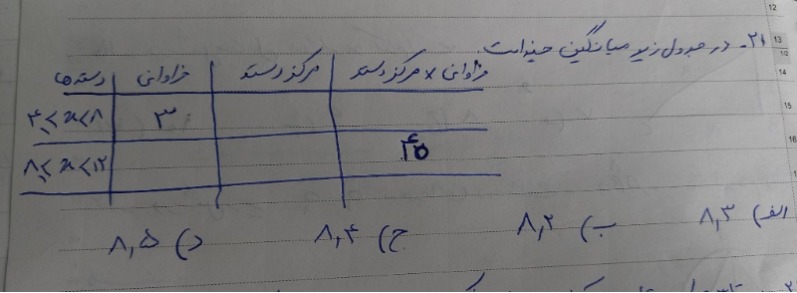 ۲۱- در جدول زیر میانگین چنداست.
دسته‌ها | فراوانی | مرکز دسته | فراوانی × مرکز دسته
۴ ≤ x < ۸ | ۳
۸ ≤ x < ۱۲ | ۴۰
الف) ۸,۳ ب) ۸,۲ ج) ۸,۴ د) ۸,۵